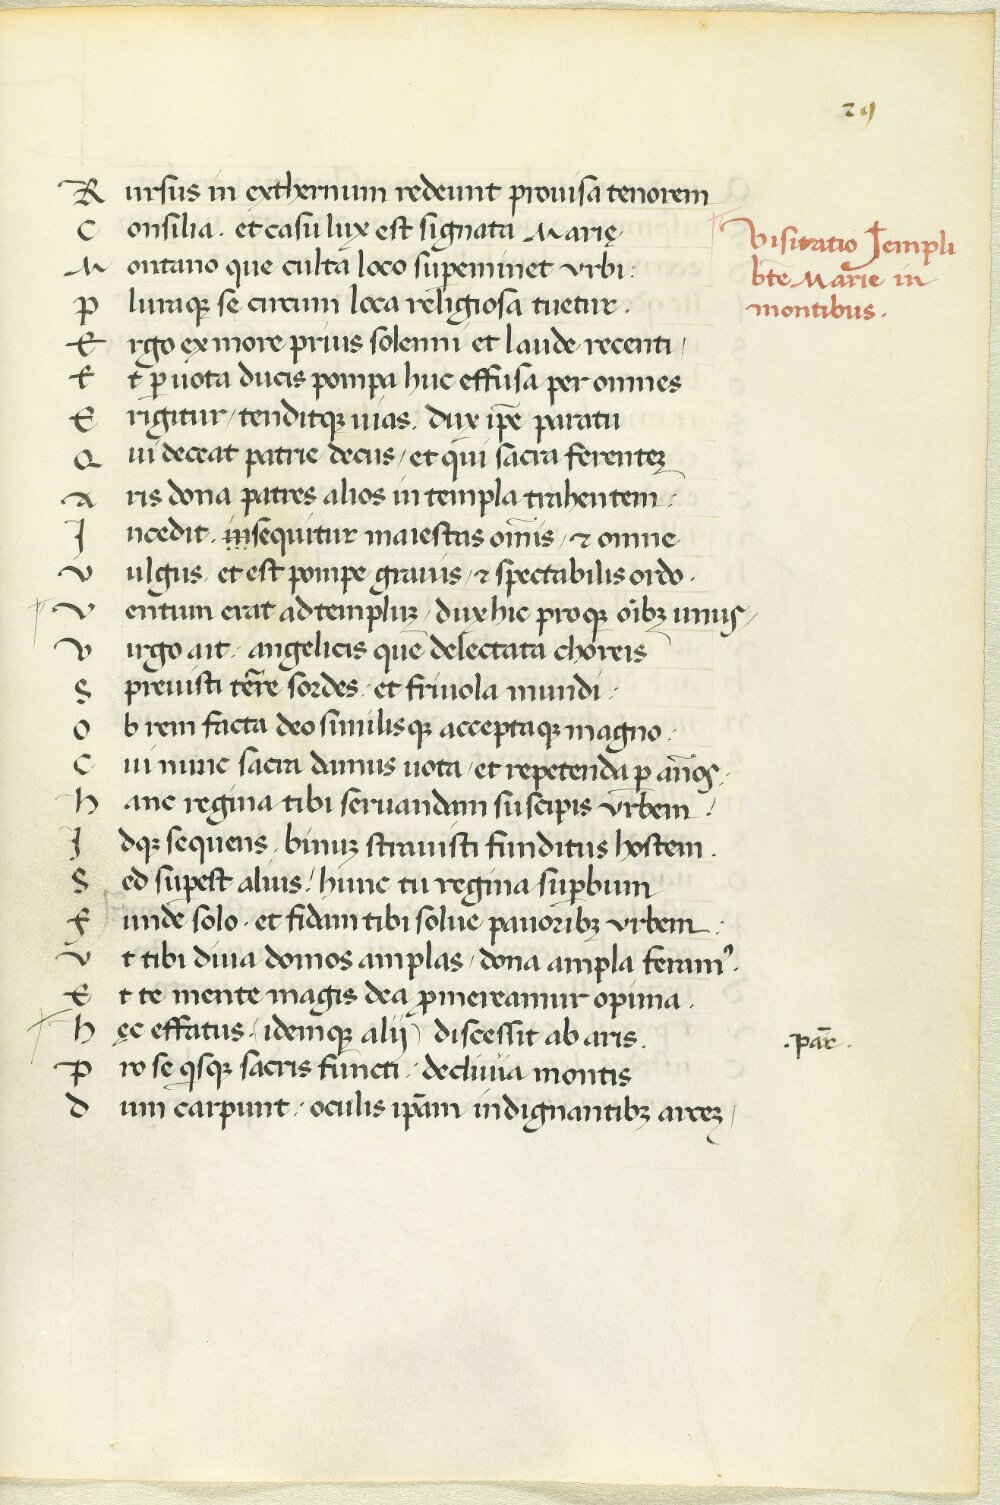 29
Rursus in exthernum redeunt prouisa tenorem
Consilia. et casu lux est signata Marię
Montano que culta loco supeminet vrbi:
pluraqꝫ se circum loca religiosa tuetur.
Ergo ex more prius solenni et laude recenti/
Et ꝑ uota ducis pompa huc effusa per omnes
Erigitur/ tenditqꝫ uias. dux ip̄e paratu
Qui deceat patrie decus/ et qui sacra ferenteꝫ
Aris dona patres alios in templa trahentem:
Incedit. insequitur maiestas om̄is/ ⁊ omne
Vulgus. et est pompe grauis/ ⁊ spectabilis ordo.
Ventum erat ad templuꝫ/ dux hic pro qꝫ oībꝫ unus/
Virgo ait: angelicis que delectata choreis
Spreuisti terre sordes. et friuola mundi:
Ob rem facta deo similisqꝫ acceptaqꝫ magno:
Cui nunc sacra damus uota/ et repetenda ꝑ annos:
hanc regina tibi seruandam suscipis vrbem:
Idqꝫ sequens. binuꝫ strauisti funditus hostem.
Sed supest alius/ hunc tu regina supbum
Funde solo. et fidam tibi solue pauoribꝫ vrbem:
Vt tibi diua domos amplas/ dona ampla feramꝰ.
Et te mente magis dea ꝓmereamur opima.
hęc effatus. (idemqꝫ alij) discessit ab aris.
Pro se qsqꝫ sacris functi: decliuia montis
dum carpunt: oculis ipam indignantibꝫ arceꝫ/
Visitatio Templi
bt̄e Marie in
montibus.